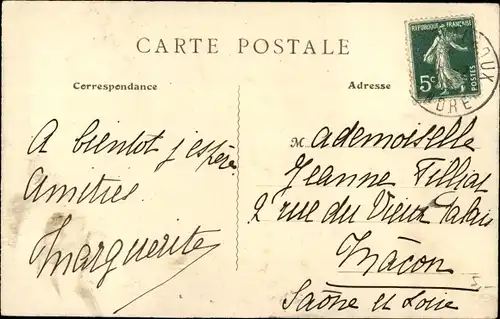 CARTE POSTALE
RÉPUBLIQUE FRANÇAISE
5c
POSTES
OUX
INDRE
Correspondance
Adresse
A bientot j'espère
Amitiés
Marguerite
Mademoiselle
Jeanne Filliat
2 rue du Vieux Palais
Mâcon
Saône et Loire